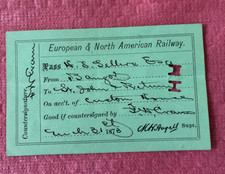 European & North American Railway.
Pass H. E. Sellers Esq
From Bangor
To St. John & Return
On acc't. of Custom House
Good if countersigned by F. W. Cram
31st 1873
Supt.
Countersigned: